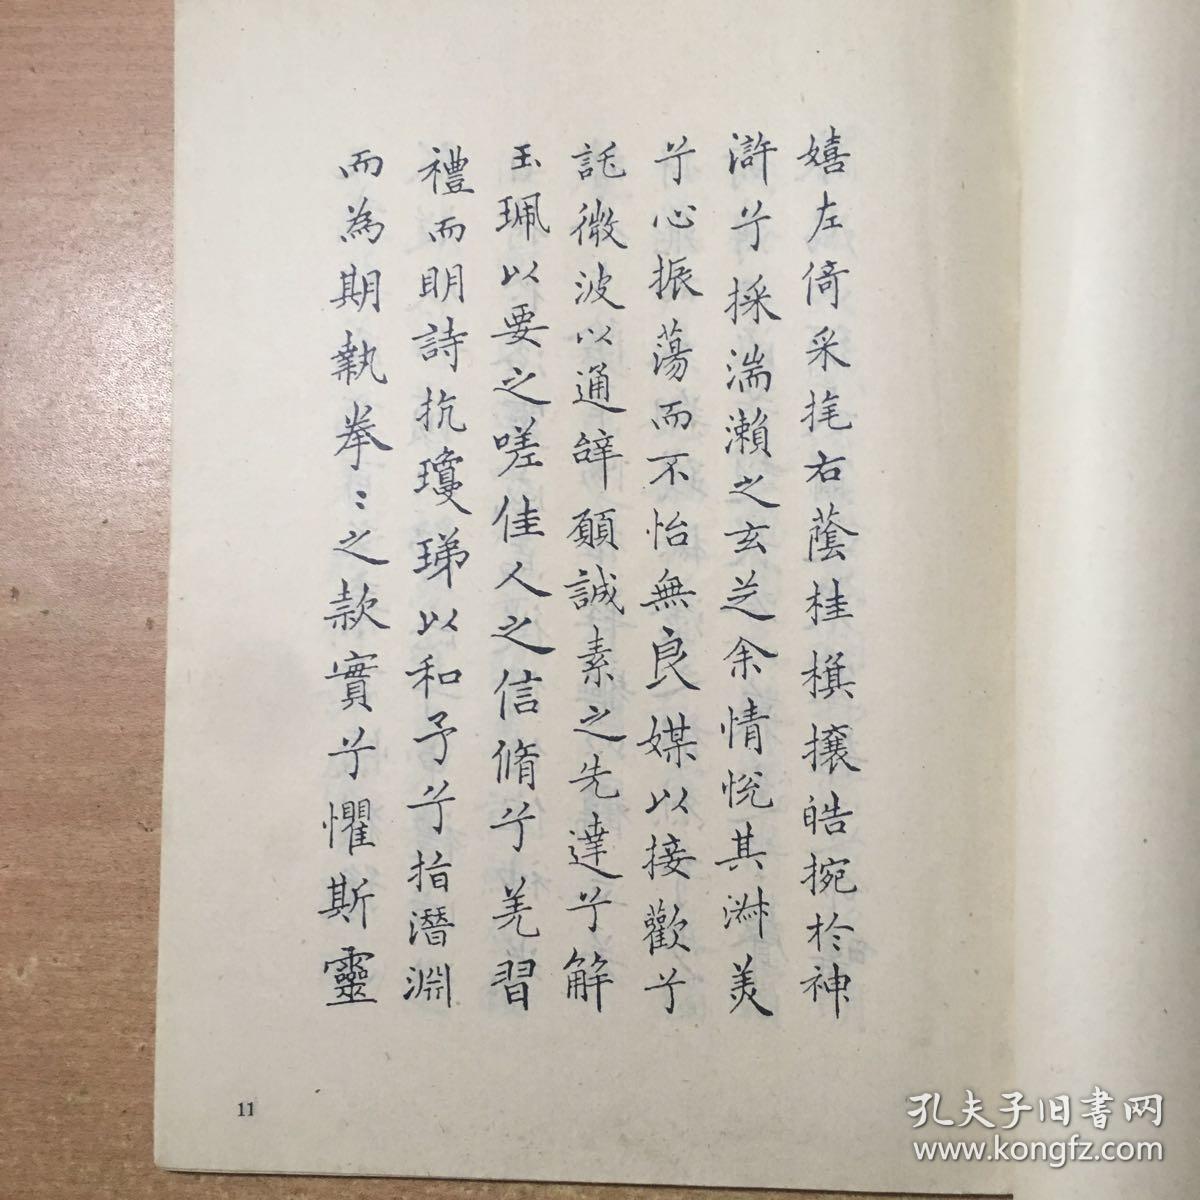 嬉左倚采旄右蔭桂旗攘皓捥於神
滸兮採湍瀨之玄芝余情悅其淋美
兮心振蕩而不怡無良媒以接歡兮
託微波以通辝願誠素之先達兮解
玉珮以要之嗟佳人之信脩兮羌習
禮而明詩抗瓊珶以和予兮指潛淵
而為期執拳〻之款實兮懼斯靈
11
孔夫子旧書网
www.kongfz.com